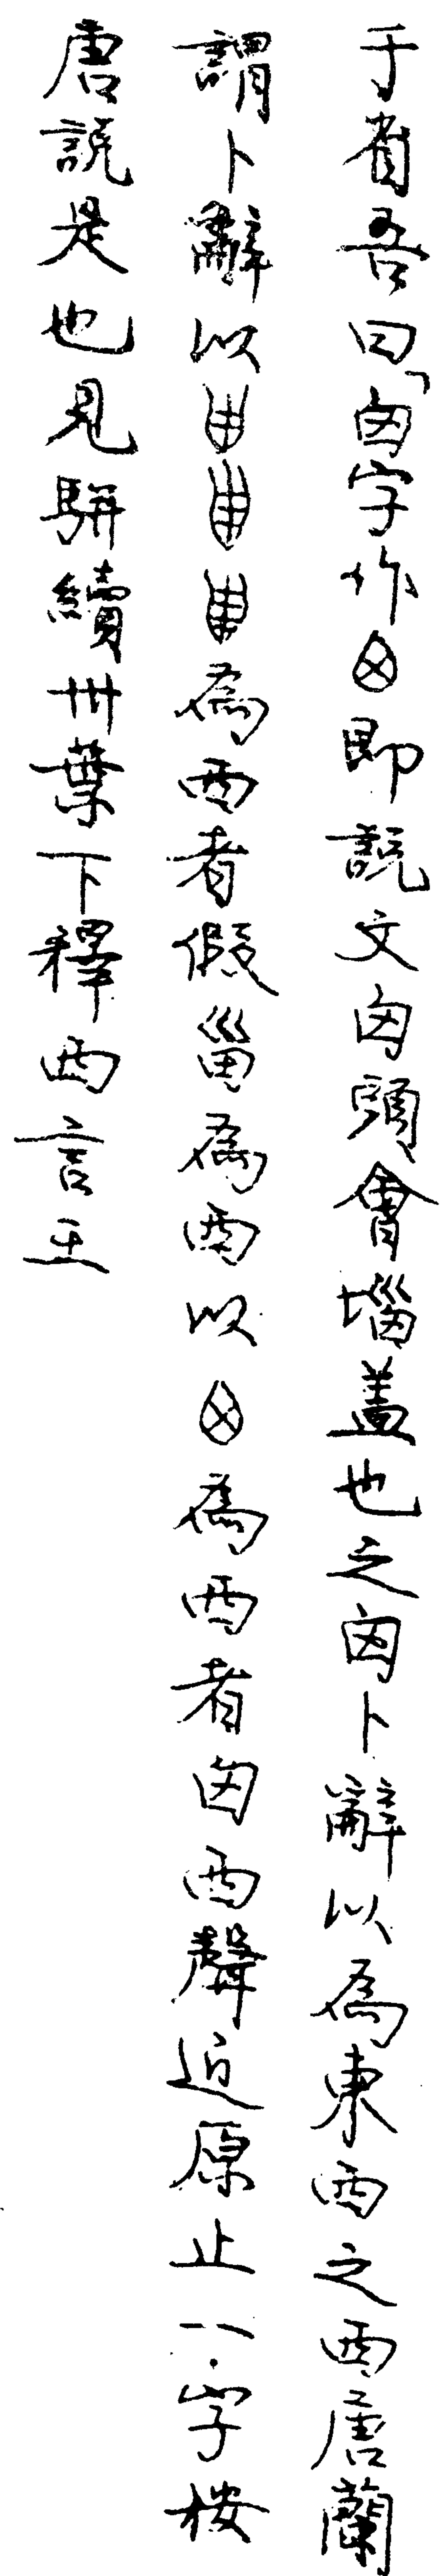 于省吾曰「囟字作即説文囟頭會堖蓋也之囟卜辭以為東西之西唐蘭
謂卜辭以為西者假甾為西以為西者囟西聲近原止一字按
唐説是也見駢續卅葉下釋西言王